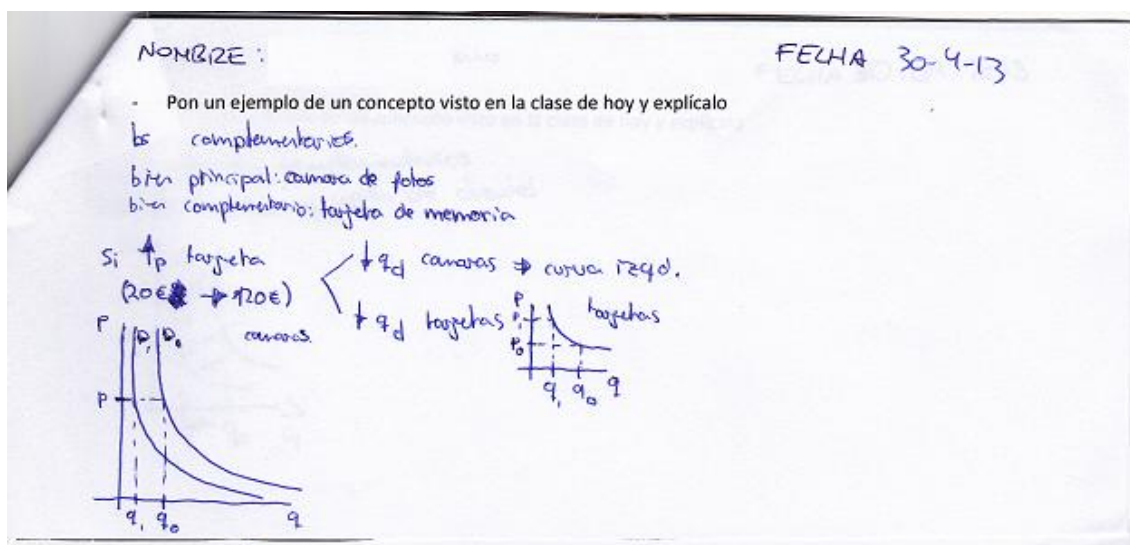 NOMBRE :
FECHA 30-4-13
- Pon un ejemplo de un concepto visto en la clase de hoy y explícalo
bs complementarios.
bien principal: camara de fotos
bien complementario: tarjeta de memoria
Si ↑p tarjeta
(20€ → 120€)
↓ qd camaras → curva izqd.
↓ qd tarjetas
P
D₁ D₀
camaras
P
q₁ q₀ q
P
tarjetas
P₁
P₀
q₁ q₀ q